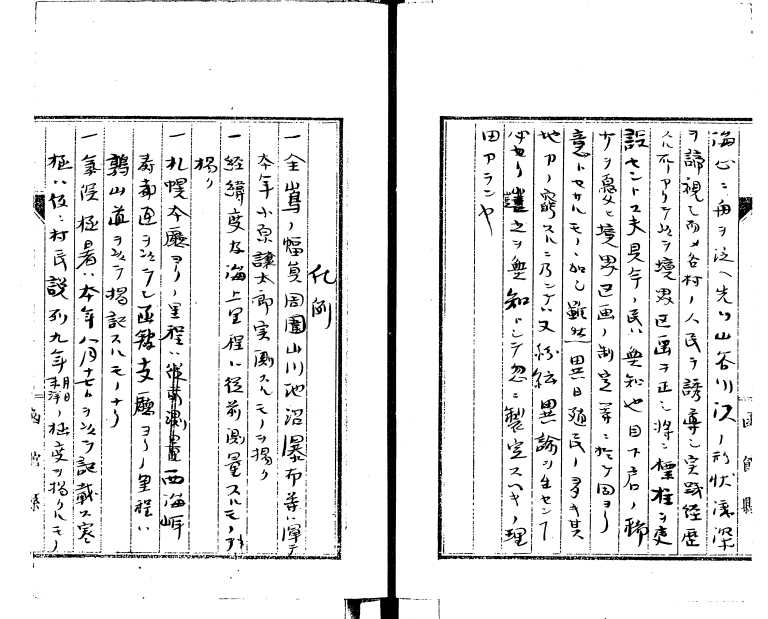 海心ニ舟ヲ泛ヘ先ツ山谷川沢ノ形状深梁
ヲ諦視シ而メ各村ノ人民ヲ誘導シ実践経歴
スル所アリテ以テ境界区画ヲ正シ将ニ標柱ヲ建
設セントス夫見今ノ民ハ無知也目下戸口ノ稀
少ヲ憂ヒ境界区画ノ制定等ニ於ケ固ヨリ
意トセサルモノヽ如シ雖然異日殖民ノ多キ其
地力ノ窮スルニ乃ンテハ又紛紜異論ヲ生センコ
必セリ豈之ヲ無知トシテ忽ニ製定スヘキノ理
田アランヤ
凡例
一 全島ノ幅員周囲山川池沼瀑布等ハ渾テ
本年小原譲太郎実測スルモノヲ掲ク
一 経緯度及海上里程ハ従前測量スルモノヲ
掲ク
一 札幌本廳ヨリノ里程ハ西海岸
寿都通ヲ以テシ函館支廳ヨリノ里程ハ
鶉山道ヲ以テ掲記スルモノナリ
一 氣候極暑ハ本年八月十七日ヲ以テ記載ス寒
極ハ位ニ村民説列九年月日未詳ノ極度ヲ掲クルモノ
函館縣
函館縣